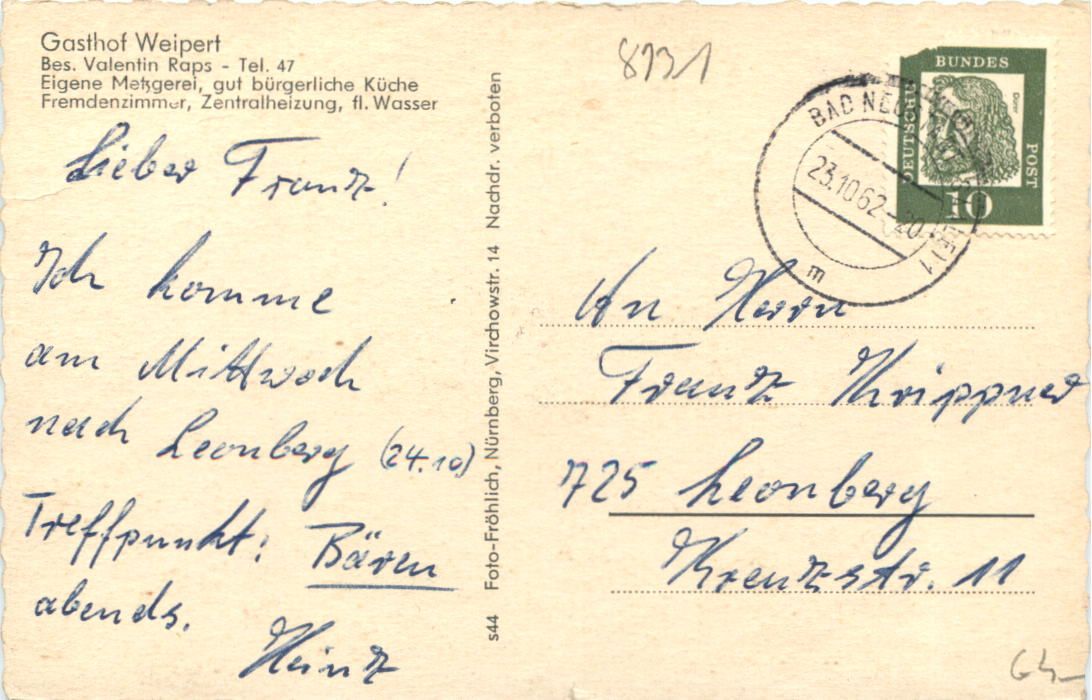 Gasthof Weipert
Bes. Valentin Raps - Tel. 47
Eigene Metzgerei, gut bürgerliche Küche
Fremdenzimmer, Zentralheizung, fl. Wasser
Lieber Franz!
Ich komme
am Mittwoch
nach Leonberg (24.10)
Treffpunkt: Bären
abends.
Heinz
s44 Foto-Fröhlich, Nürnberg, Virchowstr. 14 Nachdr. verboten
8731
BAD
23.10.62-20
m
BUNDES
POST
DEUTSCHE
Dürer
10
An Herrn
Franz Krippner
725 Leonberg
Kreuzstr. 11